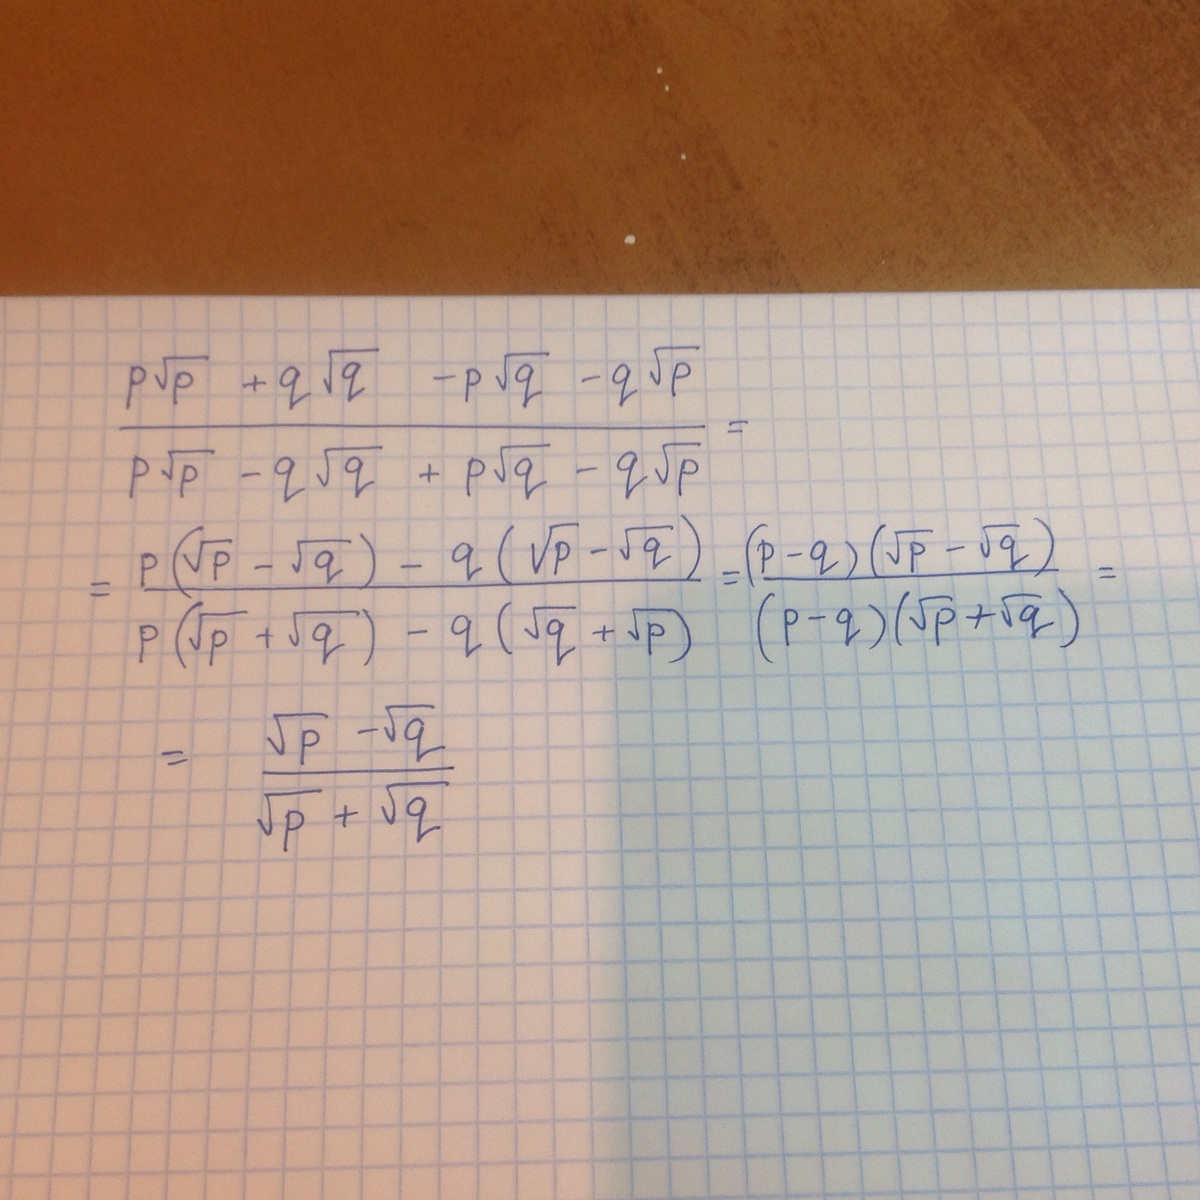 p√p + q√q - p√q - q√p =
p√p - q√q + p√q - q√p
= p(√p - √q) - q(√p - √q) = (p - q)(√p - √q) =
p(√p + √q) - q(√q + √p) (p - q)(√p + √q)
= √p - √q
√p + √q